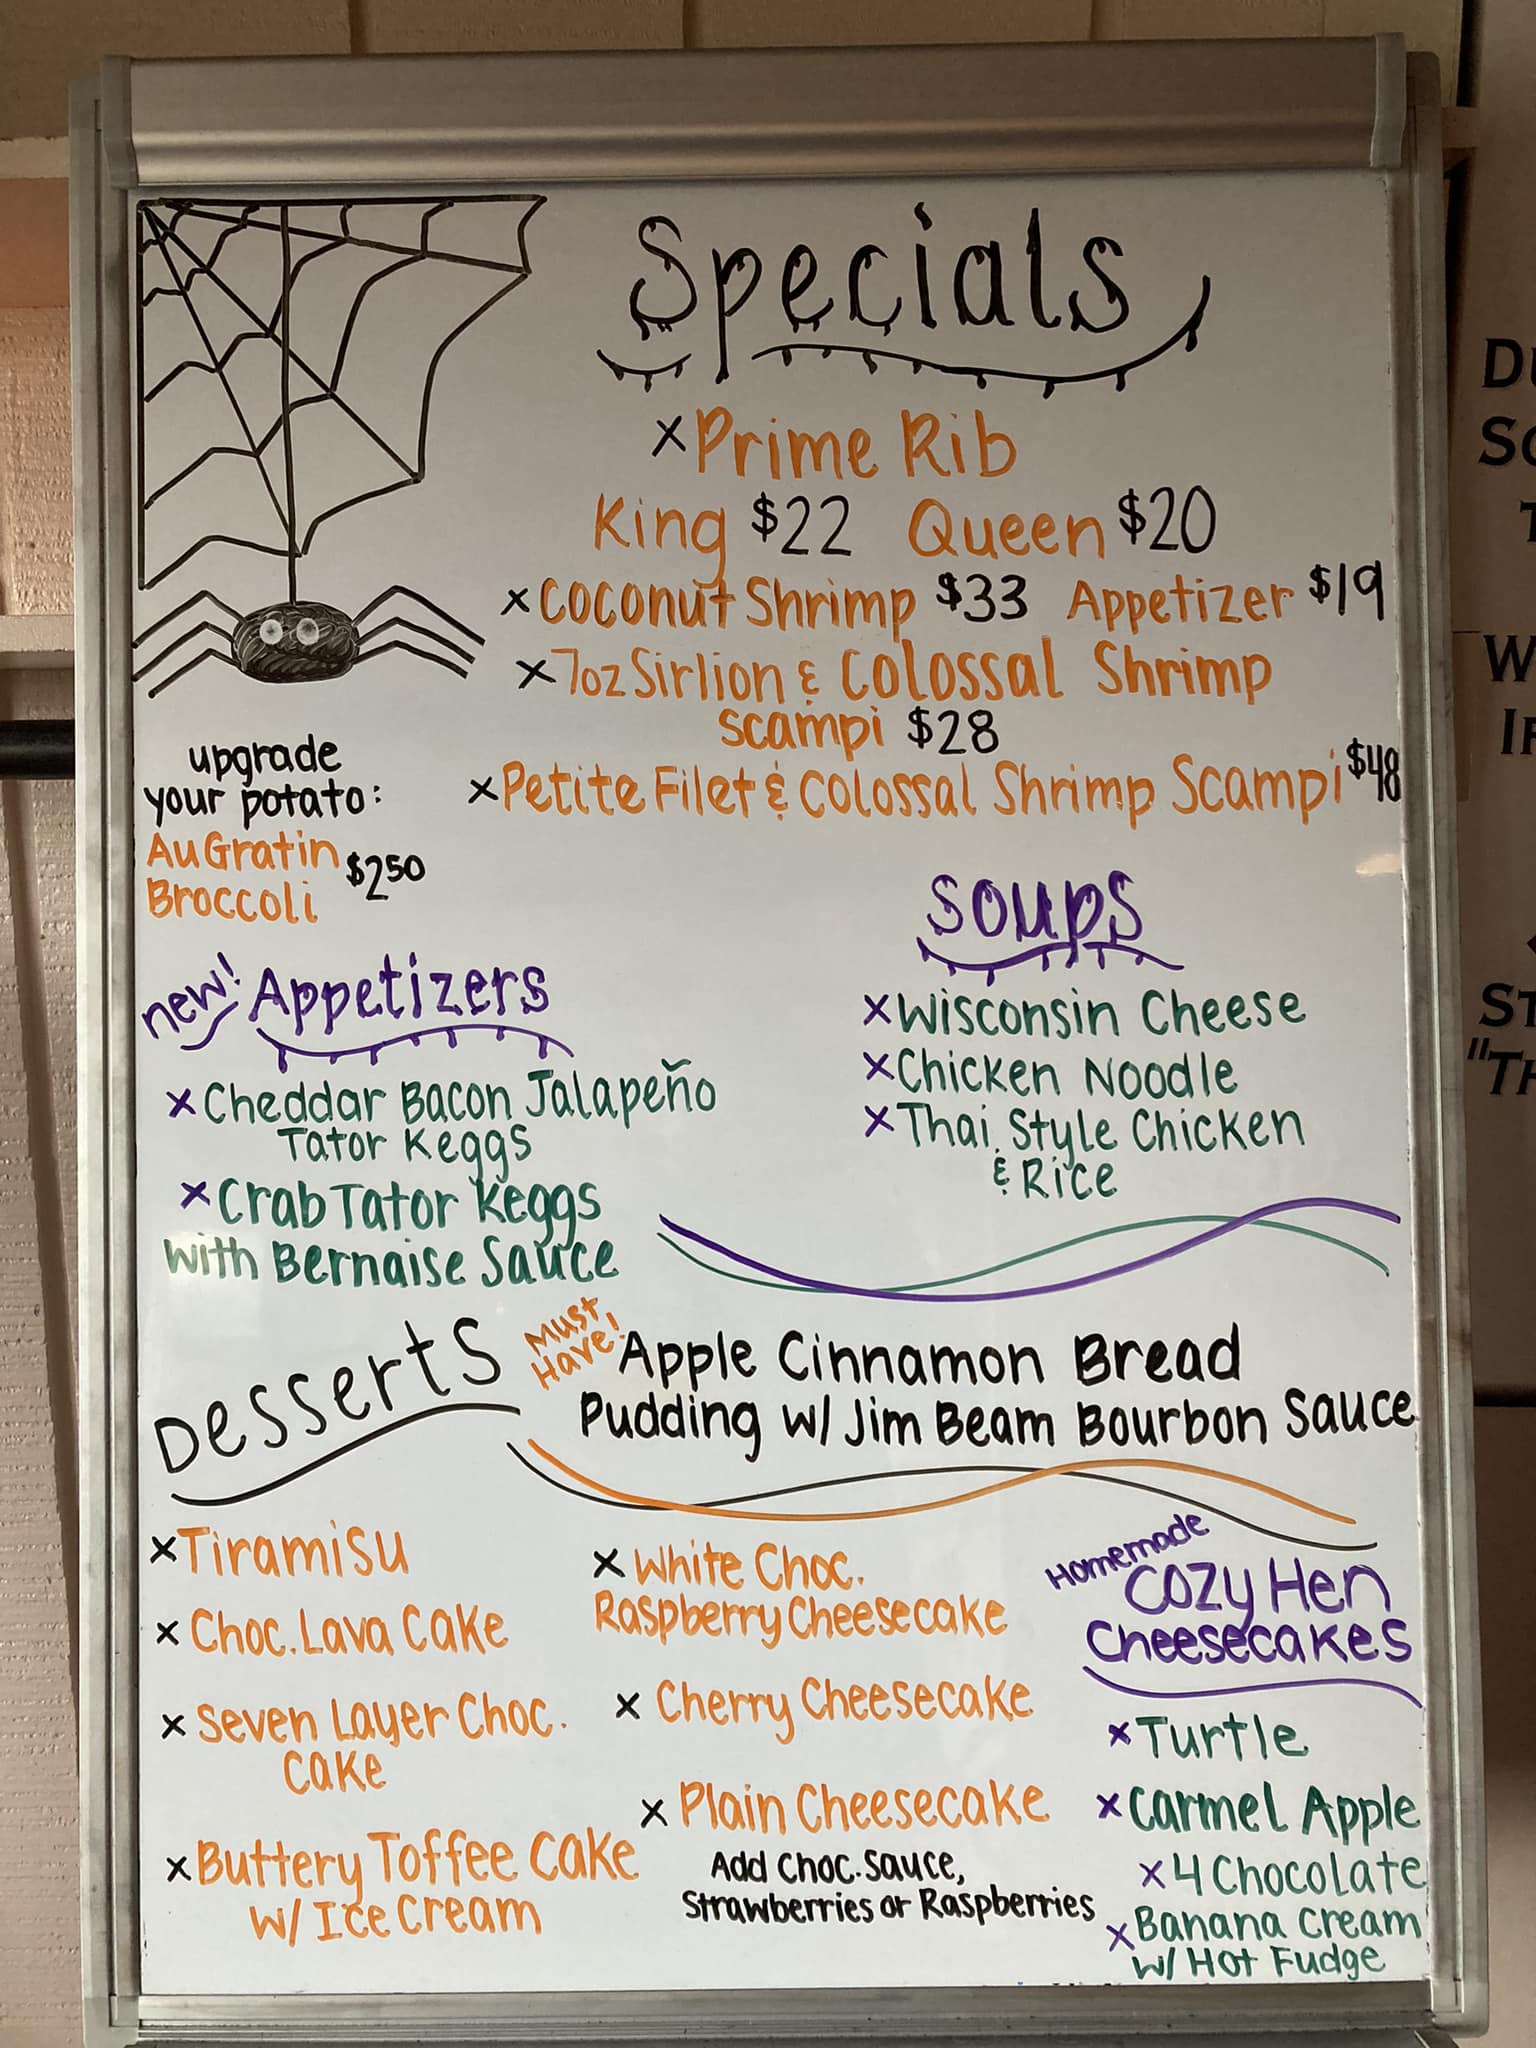 Specials
×Prime Rib
King $22 Queen $20
×Coconut Shrimp $33 Appetizer $19
×7oz Sirlion & Colossal Shrimp
Scampi $28
×Petite Filet & Colossal Shrimp Scampi $48
upgrade
your potato:
Au Gratin
Broccoli $2.50
Soups
×Wisconsin Cheese
×Chicken Noodle
×Thai Style Chicken
& Rice
new! Appetizers
×Cheddar Bacon Jalapeño
Tator Keggs
×Crab Tator Keggs
with Bernaise Sauce
Desserts
Must
Have!
Apple Cinnamon Bread
Pudding w/ Jim Beam Bourbon Sauce
×Tiramisu
× Choc. Lava Cake
× Seven Layer Choc.
Cake
×Buttery Toffee Cake
w/ Ice Cream
× White Choc.
Raspberry Cheesecake
× Cherry Cheesecake
× Plain Cheesecake
Add Choc. Sauce,
Strawberries or Raspberries
Homemade
Cozy Hen
Cheesecakes
×Turtle
×Carmel Apple
×4 Chocolate
×Banana Cream
w/ Hot Fudge